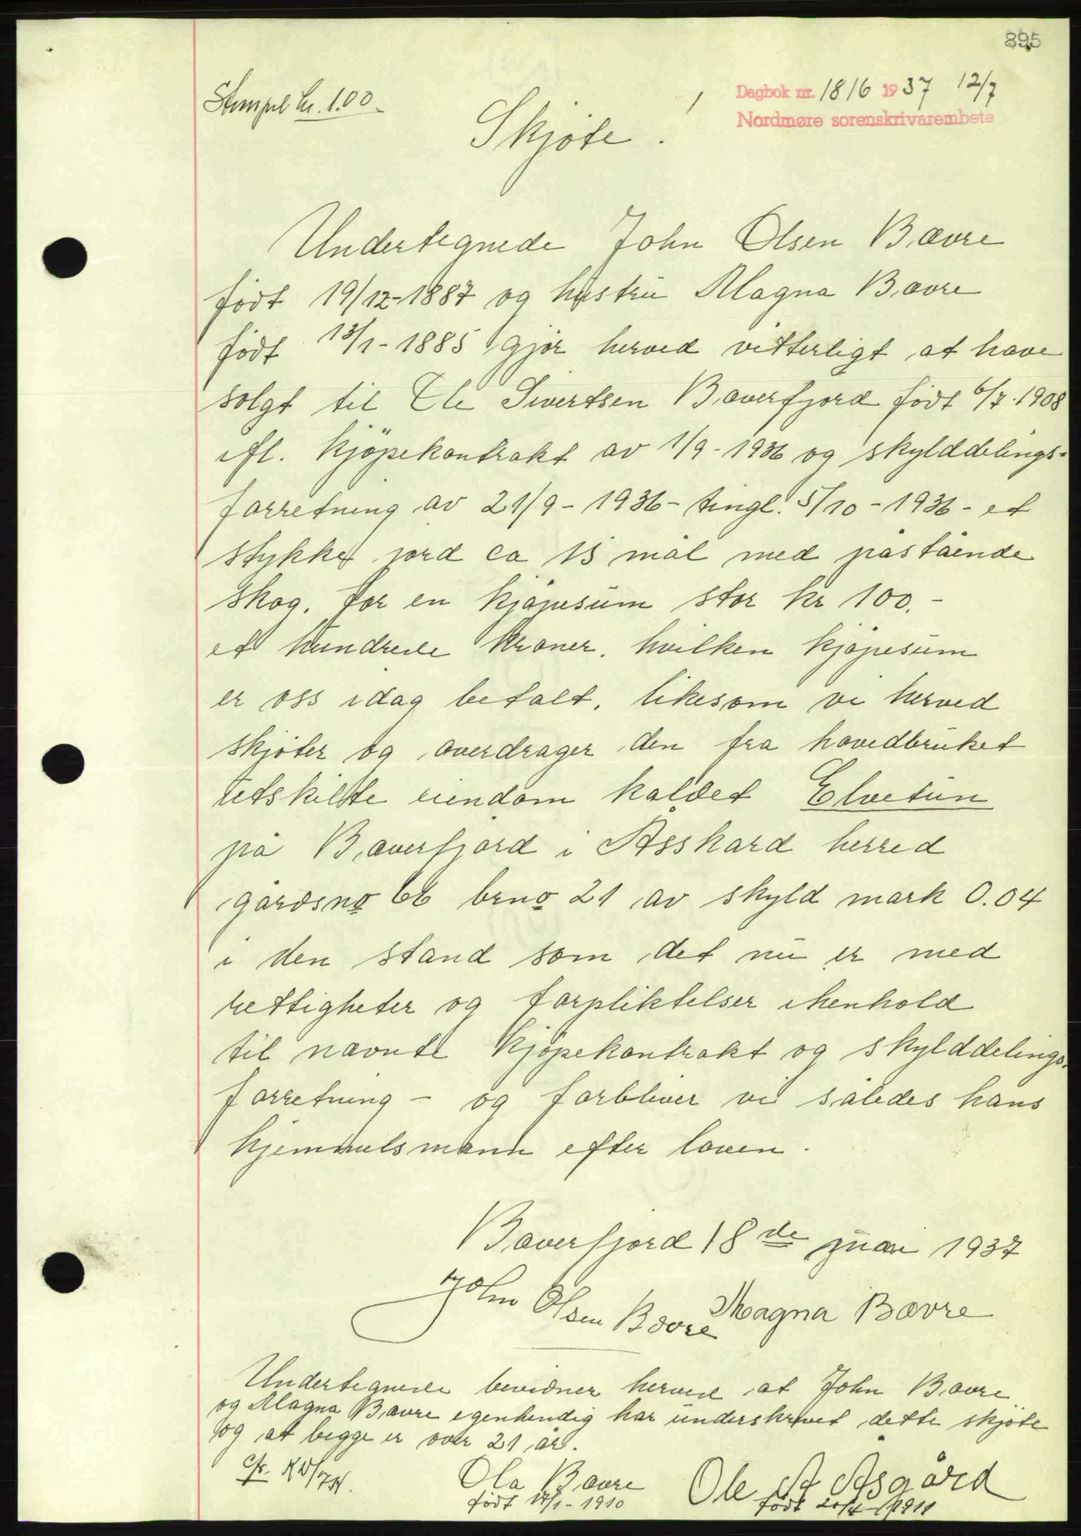 895
Stempel kr. 1.00
Dagbok nr. 1816 1937 12/7
Nordmøre sorenskrivarembete
Skjøte.
Undertegnede John Olsen Bævre
født 19/12-1887 og hustru Magna Bævre
født 13/1-1885 gjør herved vitterligt at have
solgt til Ole Sivertsen Bæverfjord født 6/7-1908
ifl. kjøpekontrakt av 1/9-1936 og skylddelings-
forretning av 21/9-1936- tingl. 5/10-1936- et
stykke jord ca 15 mål med påstående
skog, for en kjøpesum stor kr 100.-
et hundrede kroner, hvilken kjøpesum
er oss idag betalt, likesom vi herved
skjøter og overdrager den fra hovedbruket
utskilte eiendom kaldet Elvetun
på Bæverfjord i Åsskard herred
gårdsno 66 brno 21 av skyld mark 0.04
i den stand som det nu er med
rettigheter og forpliktelser ihenhold
til nævnte kjøpekontrakt og skylddelings-
forretning - og forbliver vi således hans
hjemmelsmann efter loven.
Bæverfjord 18de juni 1937
John Olsen Bævre Magna Bævre
Undertegnede bevidner herved at John Bævre
og Magna Bævre egenhendig har underskrevet dette skjøte
og at begge er over 21 år.
Ola Bævre Ole A Åsgård
født 17/1-1910 født 20/4-1911